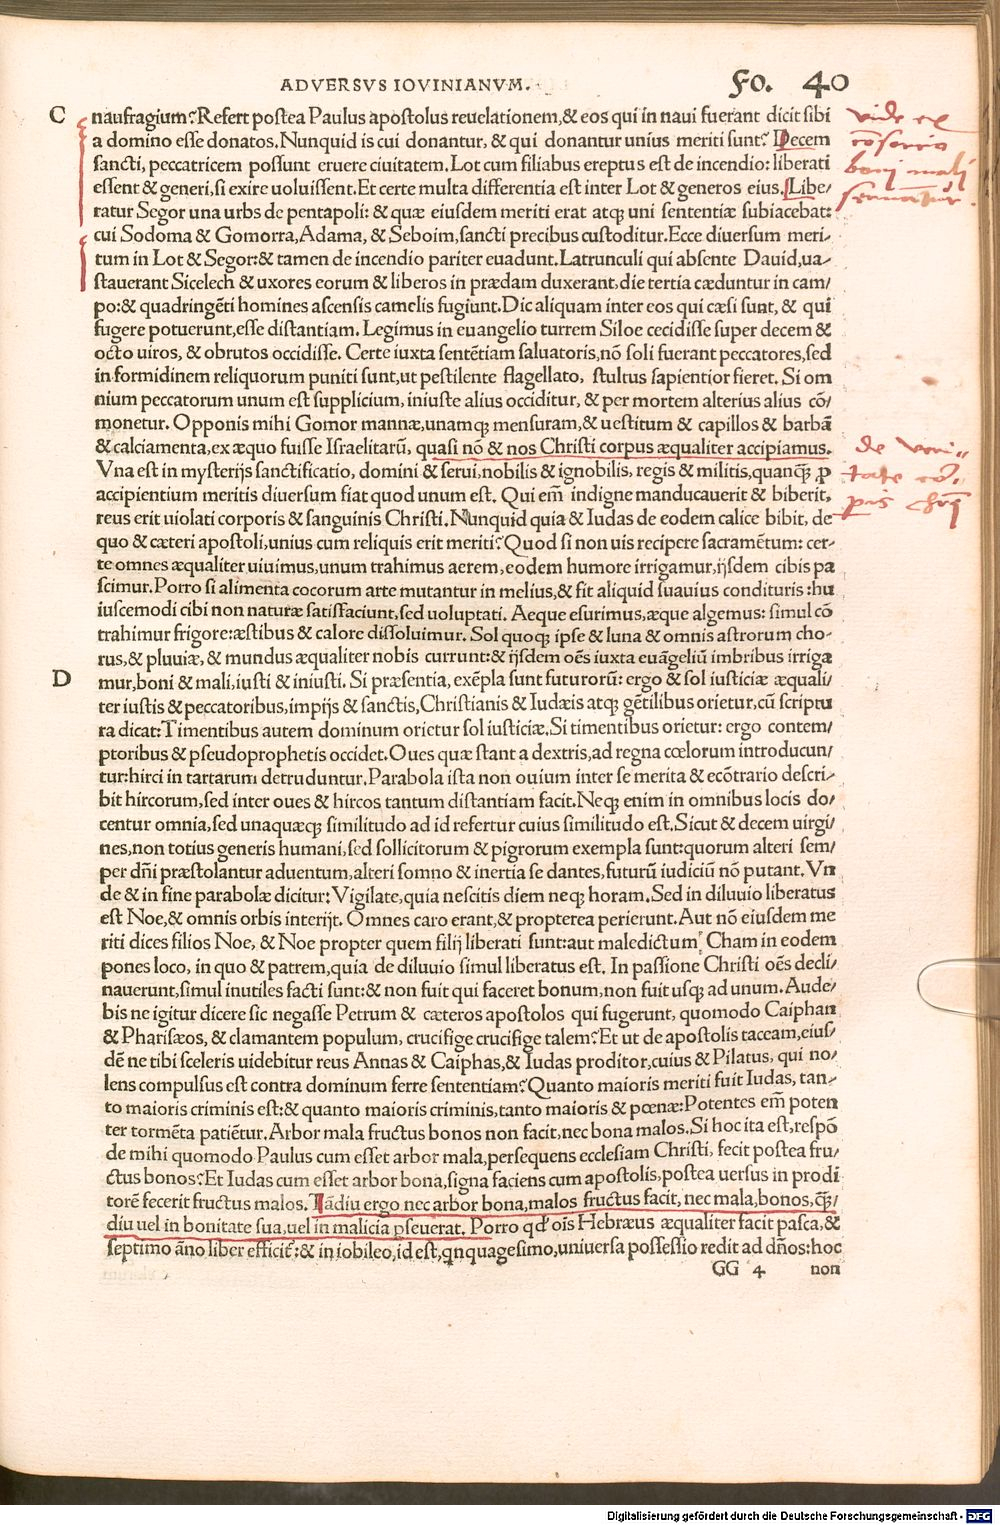 ADVERSVS IOVINIANVM.
Fo. 40
C
naufragium? Refert postea Paulus apostolus reuelationem,& eos qui in naui fuerant dicit sibi
a domino esse donatos. Nunquid is cui donantur, & qui donantur unius meriti sunt? Decem
sancti, peccatricem possunt eruere ciuitatem. Lot cum filiabus ereptus est de incendio: liberati
essent & generi, si exire uoluissent. Et certe multa differentia est inter Lot & generos eius. Libe/
ratur Segor una urbs de pentapoli: & quæ eiusdem meriti erat atqꝫ uni sententiæ subiacebat:
cui Sodoma & Gomorra, Adama, & Seboim, sancti precibus custoditur. Ecce diuersum meri/
tum in Lot & Segor: & tamen de incendio pariter euadunt. Latrunculi qui absente Dauid, ua/
stauerant Sicelech & uxores eorum & liberos in prædam duxerant, die tertia cæduntur in cam/
po: & quadringẽti homines ascensis camelis fugiunt. Dic aliquam inter eos qui cæsi sunt, & qui
fugere potuerunt, esse distantiam. Legimus in euangelio turrem Siloe cecidisse super decem &
octo uiros, & obrutos occidisse. Certe iuxta sentẽtiam saluatoris, nõ soli fuerant peccatores, sed
in formidinem reliquorum puniti sunt, ut pestilente flagellato, stultus sapientior fieret. Si om
nium peccatorum unum est supplicium, iniuste alius occiditur, & per mortem alterius alius cõ/
monetur. Opponis mihi Gomor mannæ, unamqꝫ mensuram, & uestitum & capillos & barbã
& calciamenta, ex æquo fuisse Israelitarũ, quasi nõ & nos Christi corpus æqualiter accipiamus.
Vna est in mysterijs sanctificatio, domini & serui, nobilis & ignobilis, regis & militis, quanqꝫ ꝓ
accipientium meritis diuersum fiat quod unum est. Qui em̃ indigne manducauerit & biberit,
reus erit uiolati corporis & sanguinis Christi. Nunquid quia & Iudas de eodem calice bibit, de
quo & cæteri apostoli, unius cum reliquis erit meriti? Quod si non uis recipere sacramẽtum: cer/
te omnes æqualiter uiuimus, unum trahimus aerem, eodem humore irrigamur, ijsdem cibis pa
scimur. Porro si alimenta cocorum arte mutantur in melius, & fit aliquid suauius condituris: hu
iuscemodi cibi non naturæ satisfaciunt, sed uoluptati. Aeque esurimus, æque algemus: simul cõ
trahimur frigore: æstibus & calore dissoluimur. Sol quoqꝫ ipse & luna & omnis astrorum cho/
rus, & pluuiæ, & mundus æqualiter nobis currunt: & ijsdem oẽs iuxta euãgeliũ imbribus irriga
D
mur, boni & mali, iusti & iniusti. Si præsentia, exẽpla sunt futurorũ: ergo & sol iusticiæ æquali/
ter iustis & peccatoribus, impijs & sanctis, Christianis & Iudæis atqꝫ gẽtilibus orietur, cũ scriptu
ra dicat: Timentibus autem dominum orietur sol iusticiæ. Si timentibus orietur: ergo contem/
ptoribus & pseudoprophetis occidet. Oues quæ stant a dextris, ad regna cœlorum introducun/
tur: hirci in tartarum detruduntur. Parabola ista non ouium inter se merita & ecõtrario descri/
bit hircorum, sed inter oues & hircos tantum distantiam facit. Neqꝫ enim in omnibus locis do/
centur omnia, sed unaquæqꝫ similitudo ad id refertur cuius similitudo est. Sicut & decem uirgi/
nes, non totius generis humani, sed sollicitorum & pigrorum exempla sunt: quorum alteri sem/
per dñi præstolantur aduentum, alteri somno & inertia se dantes, futurũ iudiciũ nõ putant. Vn
de & in fine parabolæ dicitur: Vigilate, quia nescitis diem neqꝫ horam. Sed in diluuio liberatus
est Noe, & omnis orbis interijt. Omnes caro erant, & propterea perierunt. Aut nõ eiusdem me
riti dices filios Noe, & Noe propter quem filij liberati sunt: aut maledictum? Cham in eodem
pones loco, in quo & patrem, quia de diluuio simul liberatus est. In passione Christi oẽs decli/
nauerunt, simul inutiles facti sunt: & non fuit qui faceret bonum, non fuit usqꝫ ad unum. Aude/
bis ne igitur dicere sic negasse Petrum & cæteros apostolos qui fugerunt, quomodo Caiphan
& Pharisæos, & clamantem populum, crucifige crucifige talem? Et ut de apostolis taceam, eius/
dẽ ne tibi sceleris uidebitur reus Annas & Caiphas, & Iudas proditor, cuius & Pilatus, qui no/
lens compulsus est contra dominum ferre sententiam? Quanto maioris meriti fuit Iudas, tan/
to maioris criminis est: & quanto maioris criminis, tanto maioris & pœnæ: Potentes em̃ poten
ter tormẽta patiẽtur. Arbor mala fructus bonos non facit, nec bona malos. Si hoc ita est, respõ
de mihi quomodo Paulus cum esset arbor mala, persequens ecclesiam Christi, fecit postea fru/
ctus bonos? Et Iudas cum esset arbor bona, signa faciens cum apostolis, postea uersus in prodi
torẽ fecerit fructus malos. Tãdiu ergo nec arbor bona, malos fructus facit, nec mala, bonos, qꝫ̃/
diu uel in bonitate sua, uel in malicia ꝑseuerat. Porro qđ oĩs Hebræus æqualiter facit pasca, &
septimo ãno liber efficit᷑: & in iobileo, id est, qnquagesimo, uniuersa possessio redit ad dños: hoc
GG 4 non
vide ex
cõsorcio
bonj malj
seruant᷑
de veri-
tate cor
poris chrj
Digitalisierung gefördert durch die Deutsche Forschungsgemeinschaft - DFG